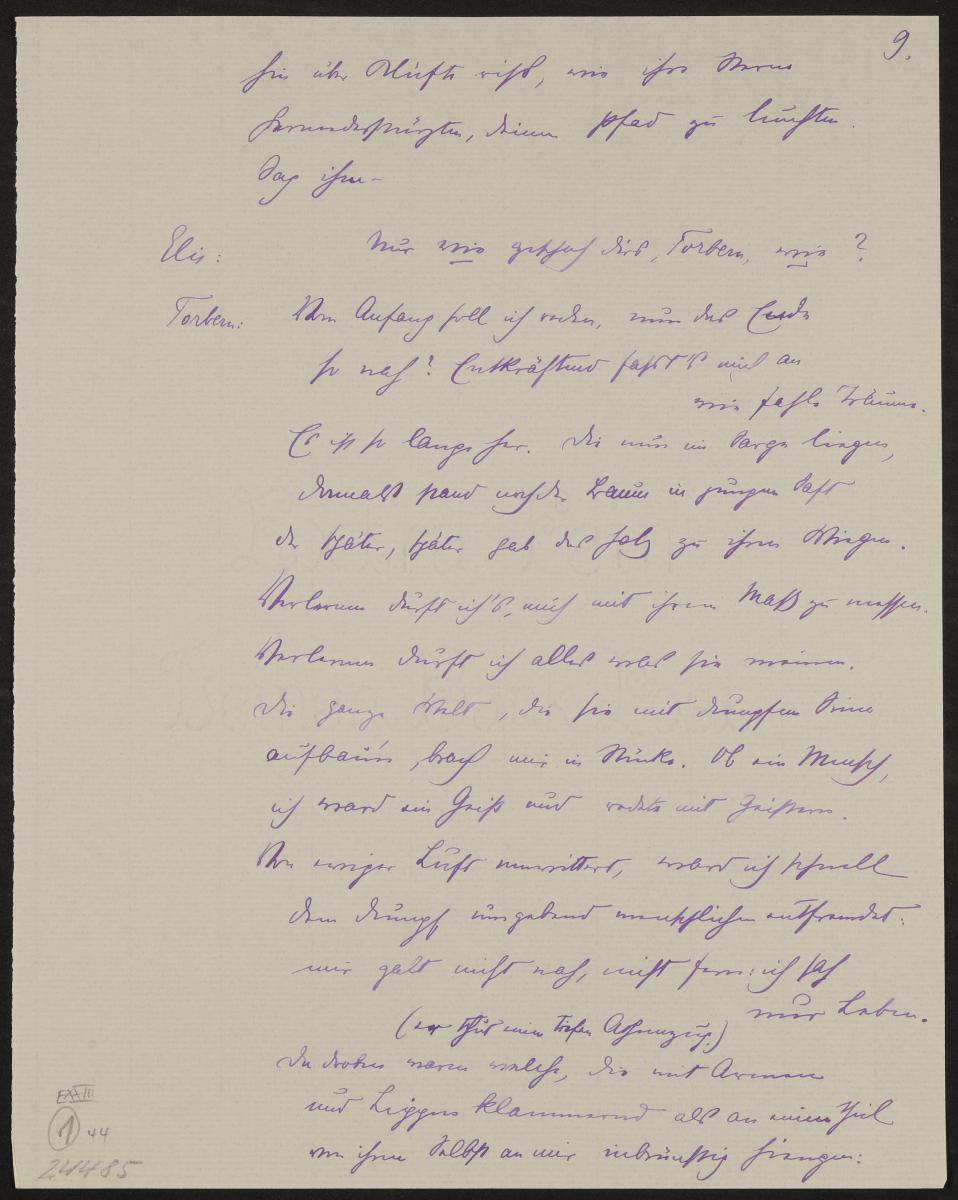 9.
hin über Klüfte riß, wie ihre Sterne
herunterstürzten, deinem Pfad zu leuchten.
Sag ihm –
Elis: Nur wie geschah dies, Torbern, wie?
Torbern: Vom Anfang soll ich reden, nun das Ende
so nah? Entkräftend fasst's mich an
wie fahle Träume.
Es ist so lange her. Die nun im Sarge liegen,
damals stand noch der Baum in jungem Saft
der später, später gab das Holz zu ihren Wiegen.
Verlernen durft ich's, mich mit ihrem Maß zu messen.
Verlernen durft ich alles was sie meinen.
Die ganze Welt, die sie mit dumpfem Sinn
aufbau'n, brach mir in Stücke. Ob ein Mensch,
ich ward ein Geist und redete mit Geistern.
Von ewiger Luft umwittert, ward ich schnell
dem dumpf umgebend menschlichen entfremdet:
mir galt nicht nah, nicht fern: ich sah
nur Leben.
(er thut einen tiefen Athemzug.)
Da droben waren welche, die mit Armen
und Lippen klammernd als an einem Ziel
von ihrem Selbst an mir inbrünstig hiengen:
E XXIII
1 44
24485